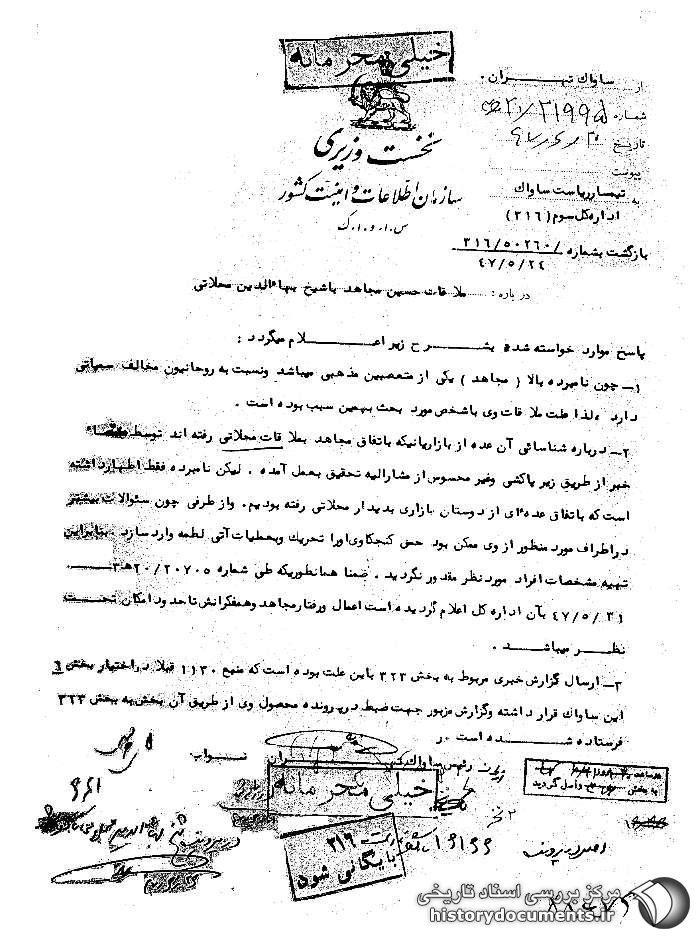 خیلی محرمانه
از ساواک تهران .
شماره ۳۱۹۹۵/
تاریخ
پیوست
نخست وزیری
سازمان اطلاعات و امنیت کشور
س.ا.و.ا.ک
به تیمسار ریاست ساواک
اداره کل سوم (۳۱۶)
بازگشت بشماره ۳۱۶/۵۰۲۶۰/
۴۷/۵/۲۴
درباره : ملاقات حسین مجاهد باشیخ بهاءالدین محلاتی
پاسخ موارد خواسته شده بشرح زیر اعلام میگردد :
۱- چون نامبرده بالا ( مجاهد ) یکی از متعصبین مذهبی میباشد ونسبت به روحانیون مخالف سمپاتی
دارد ،لذا علت ملاقات وی باشخص مورد بحث بهمین سبب بوده است .
۲- درباره شناسائی آن عده از بازاریانیکه باتفاق مجاهد بملاقات محلاتی رفته اند توسط
خبر از طریق زیر پاکشی وغیر محسوس از مشارالیه تحقیق بعمل آمده . لیکن نامبرده فقط اظهارداشته
است که باتفاق عده ای از دوستان بازاری بدیدار محلاتی رفته بودیم. واز طرفی چون سئوالات بیشتر
دراطراف مورد منظور از وی ممکن بود حس کنجکاوی اورا تحریک وبعملیات آتی لطمه وارد سازد . بنابراین
تهیه مشخصات افراد مورد نظر مقدور نگردید . ضمنا همانطوریکه طی شماره ۲۰/۲۰۷۰۵ه۳
۴۷/۵/۳۱ بآن اداره کل اعلام گردیده است اعمال ورفتار مجاهد وهمفکرانش تاحدود امکان تحت
نظر میباشد .
۳- ارسال گزارش خبری مربوط به بخش ۳۲۳ باین علت بوده است که منبع ۱۱۳۰ قبلا در اختیار بخش ٦
این ساواک قرار داشته وگزارش مزبور جهت ضبط درپرونده محصول وی از طریق آن بخش به بخش ۳۲۳
فرستاده شده است .
رئیس ساواک تهران نواب
خیلی محرمانه
به بخش واصل گردید
۳۱۶
بایگانی شود
مرکز بررسی اسناد تاریخی
historydocuments.ir